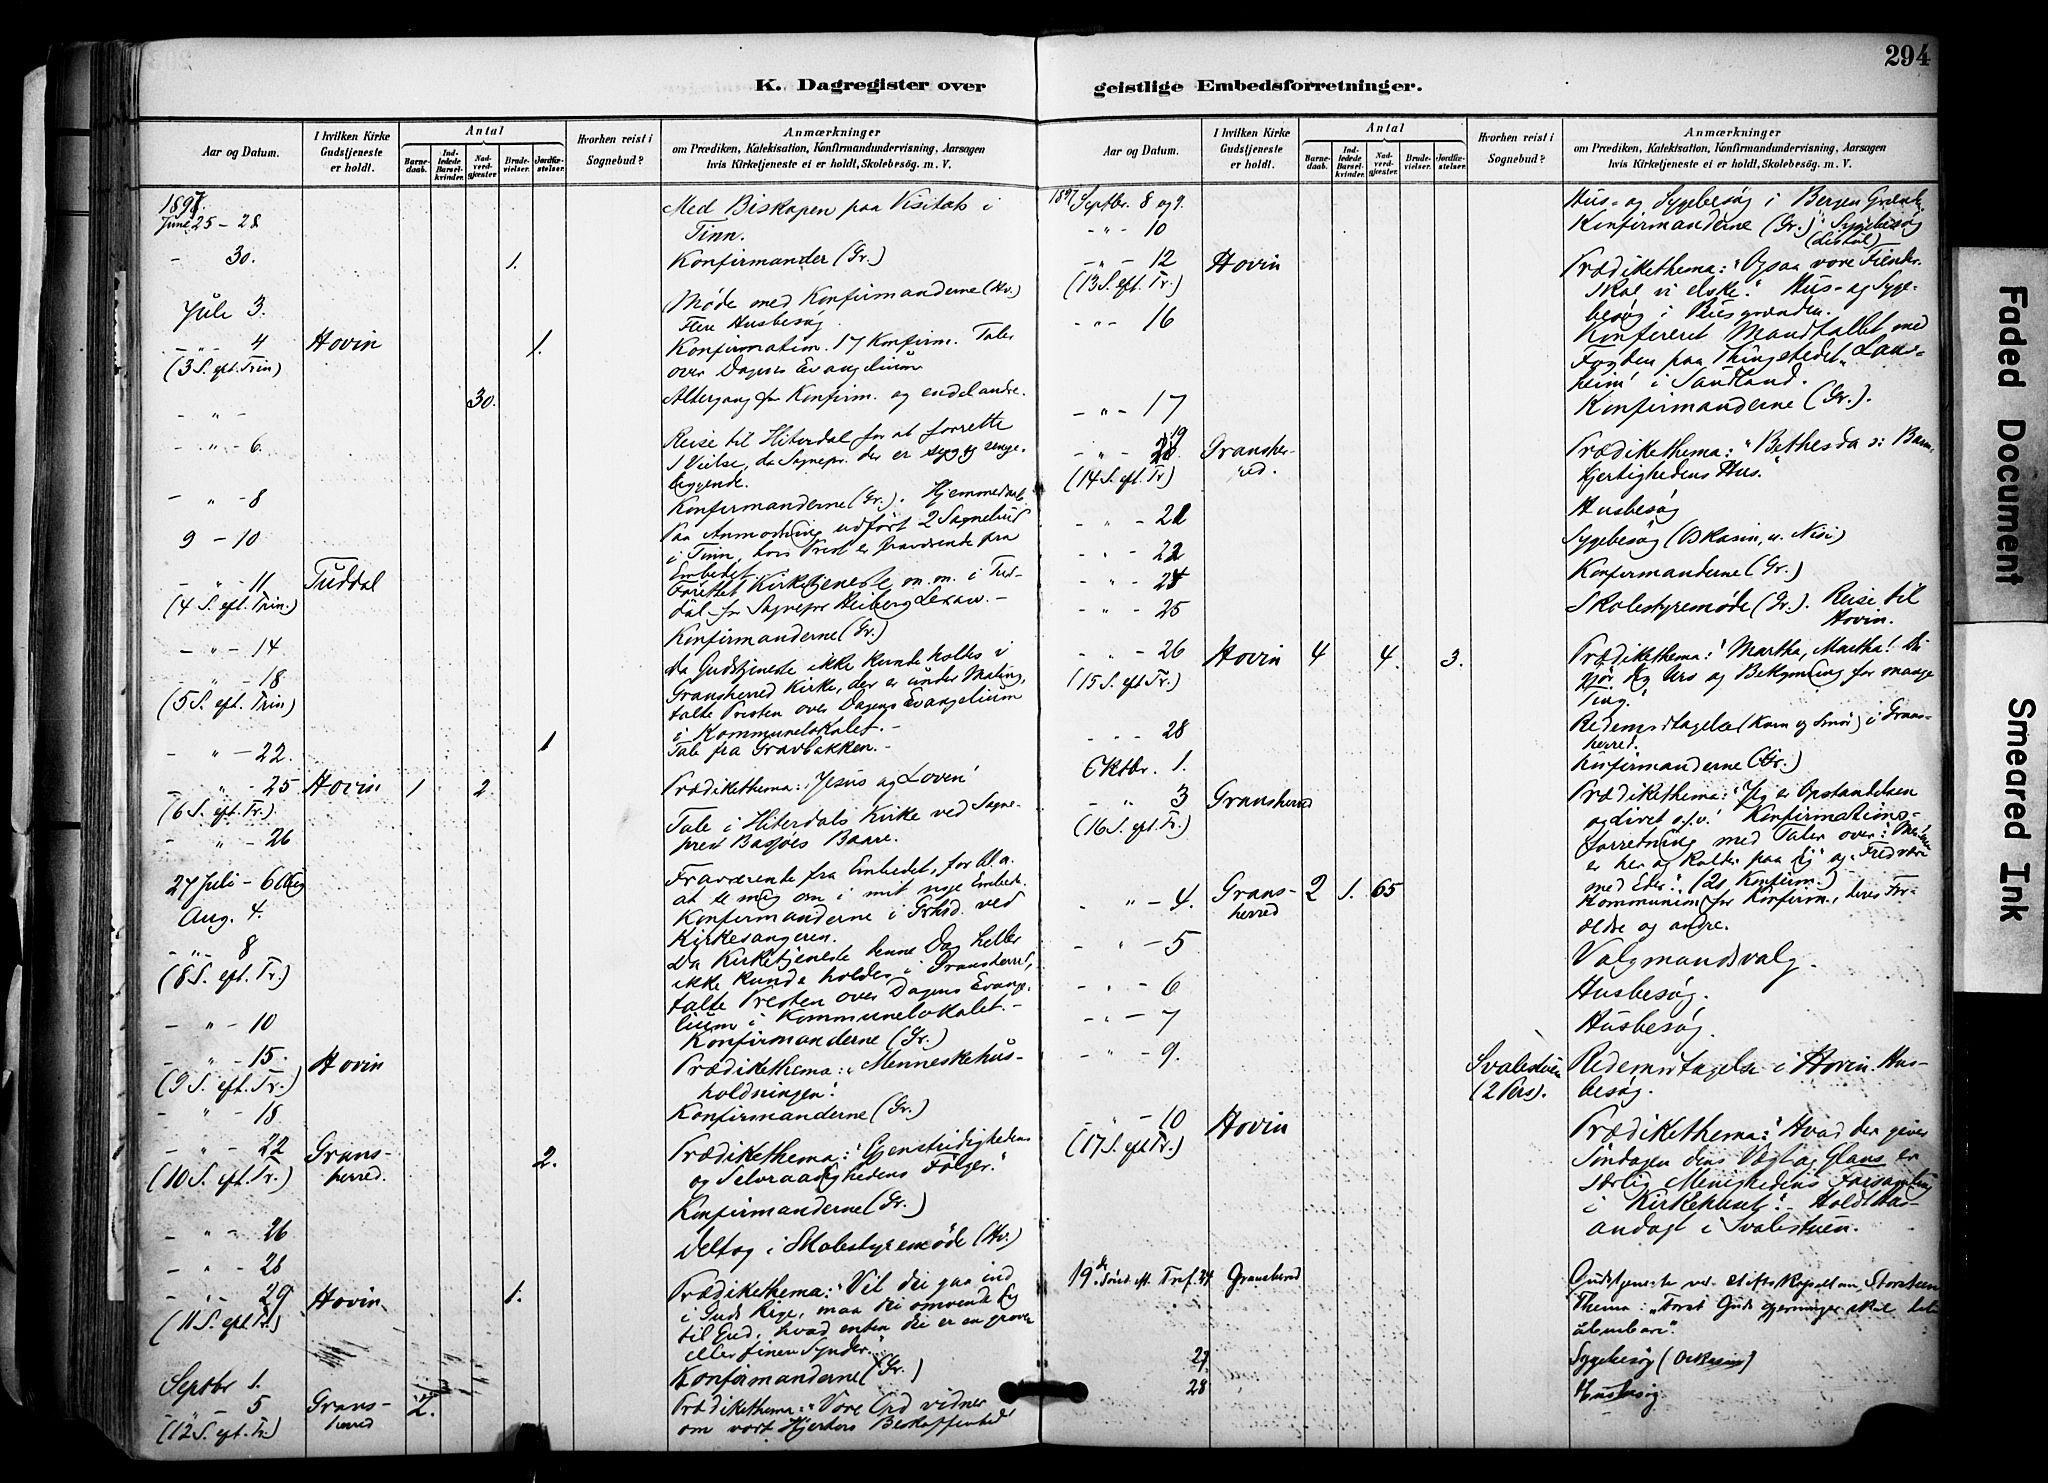 294
K. Dagregister over geistlige Embedsforretninger.
Aar og Datum.
I hvilken Kirke Gudstjeneste er holdt.
Antal
Barnedaab.
Indledede Barselkvinder.
Nadverdgjæster
Brudevielser.
Jordfæstelser.
Hvorhen reist i Sognebud?
Anmærkninger
om Prædiken, Katekisation, Konfirmandundervisning, Aarsagen
hvis Kirketjeneste ei er holdt, Skolebesög. m. V.
1897.
Juni 25-28 Med Biskopen paa Visitats i
Tinn.
- 30. 1. Konfirmander (Gr.)
Juli 3. Møde med Konfirmanderne (Hv.)
Husbesøg
- " - 4 Hovin 1. Konfirmation. 17 Konfirm. Tale
(3 S. eft. Trin) over Dagens Evangelium
- " - 30. Altergang for Konfirm. og endel andre.
- " - 6. Reise til Hiterdal for at forrette
1 Vielse, da Sognepr. der er syg og senge-
liggende.
- " - 8 Konfirmanderne (Gr.).
9 - 10 Paa Anmodning udført 2 Sognebud
i Tinn, hvis Prest er fraværende fra
Embedet.
- " - 11 Tuddal Kirketjeneste m.m. i Tud-
(4 S. eft. Trin.) dal for Sognepr.
- " - 14 Konfirmanderne (Gr.)
- " - 18 Da Gudstjeneste ikke kunde holdes i
(5 S. eft. Trin) Gransherred Kirke, der er under Maling,
talte Presten over Dagens Evangelium
i Kommunelokalet.-
- " - 22. 1 Tale fra Gravbakken.-
- " - 25 Hovin 1 2. Prædikethema: "Jesus og Loven"
(6 S. eft. Tr.)
- " - 26 Tale i Hiterdals Kirke ved Sogne-
prest Basjøes Baare.
27 Juli - 6 Aug Fraværende fra Embedet, for bl.a.
at se mig om i mit nye Embede.
Aug. 4. Konfirmanderne i Grhrd. ved
Kirkesangeren.
- " - 8 Da Kirketjeneste denne Dag heller
(8 S. eft. Tr.) ikke kunde holdes i Gransherred,
talte Presten over Dagens Evange-
lium i Kommunelokalet.-
- " - 10 Konfirmanderne (Gr.)
- " - 15. Hovin Prædikethema: "Menneskehus-
(9 S. eft. Tr.) holdningen".
- " - 18 Konfirmanderne (Gr.)
- " - 22 Grans- 2. Prædikethema: "Gjenstridighedens
(10 S. eft. Tr.) herred. og Selvraadighedens Følger."
Konfirmanderne (Gr.)
- " - 26
- " - 26 Deltog i Skolestyremøde (Hv.)
- " - 29 Hovin 1. Prædikethema: "Vil du gaa ind
(11 S. eft. Tr.) i Guds Rige, maa du omvende dig
til Gud, hvad enten du er en grov
eller finere Synder."
Septbr 1. Konfirmanderne (Gr.)
- " - 5 Grans- 2. Prædikethema: "Vore Ord vidner
(12 S. eft. Tr.) herred om vort Hjertes Beskaffenhed"
Aar og Datum.
I hvilken Kirke Gudstjeneste er holdt.
Antal
Barnedaab.
Indledede Barselkvinder.
Nadverdgjæster
Brudevielser.
Jordfæstelser.
Hvorhen reist i Sognebud?
Anmærkninger
om Prædiken, Katekisation, Konfirmandundervisning, Aarsagen
hvis Kirketjeneste ei er holdt, Skolebesög. m. V.
1897 Septbr. 8 og 9. Hus- og Sygebesøg i Bergen
- " - 10 Konfirmanderne (Gr.), Sygebesøg
- " - 12 Hovin Prædikethema: "Ogsaa vore Fiender
(13 S. eft. Tr.) skal vi elske." Hus- og Syge-
besøg i
- " - 16 Konfereret Mandtallet med
Fogden paa Thingstedet
i Sauland.
- " - 17 Konfirmanderne (Gr.).
- " - 19 Gransher- Prædikethema: "Bethesda ɔ: Barm-
(14 S. eft. Tr) red. hjertighedens Hus."
- " - 21 Husbesøg
- " - 22 Sygebesøg
- " - 24 Konfirmanderne (Gr.)
- " - 25 Skolestyremøde (Gr.). Reise til
Hovin.
- " - 26 Hovin 4 4. 3. Prædikethema: "Martha, Martha! Du
(15 S. eft. Tr.) gjør dig Uro og Bekymring for mange
Ting."
- " - 28 (Korn og Smør) i Grans-
herred.
Oktbr. 1. Konfirmanderne (Gr.)
- " 3 Gransherred Prædikethema: "Jeg er Opstandelsen
(16 S. eft. Tr.) og Livet o.s.v." Konfirmations-
forretning med Taler over: "Mesteren
er her og kalder paa dig" og "Fred være
med Eder." (21 Konfirm.)
- " - 4. Grans- 2 1. 65 Kommunion for Konfirm., deres For-
herred ældre og andre.
- " - 5 Valgmandsvalg.
- " - 6 Husbesøg.
- " - 7 Husbesøg.
- " - 9. Svalestuen i Hovin. Hus-
(2 Pers). besøg.
- " - 10 Hovin Prædikethema: "Hvad der giver
(17 S. eft Tr.) Søndagen dens Vægt og Glans er
særlig Menighedens Forsamling
i Kirkehuset".- Holdt Hus-
andagt i Svalestuen.
19de Sønd. eft. Tref. 24 Gransherred Gudstjeneste ved Stiftskapellan Storsteen
Thema: "Forat Guds gjerninger skal bli
åbenbare".
27 Sygebesøg
28 Husbesøg.
Faded Document
Smeared Ink